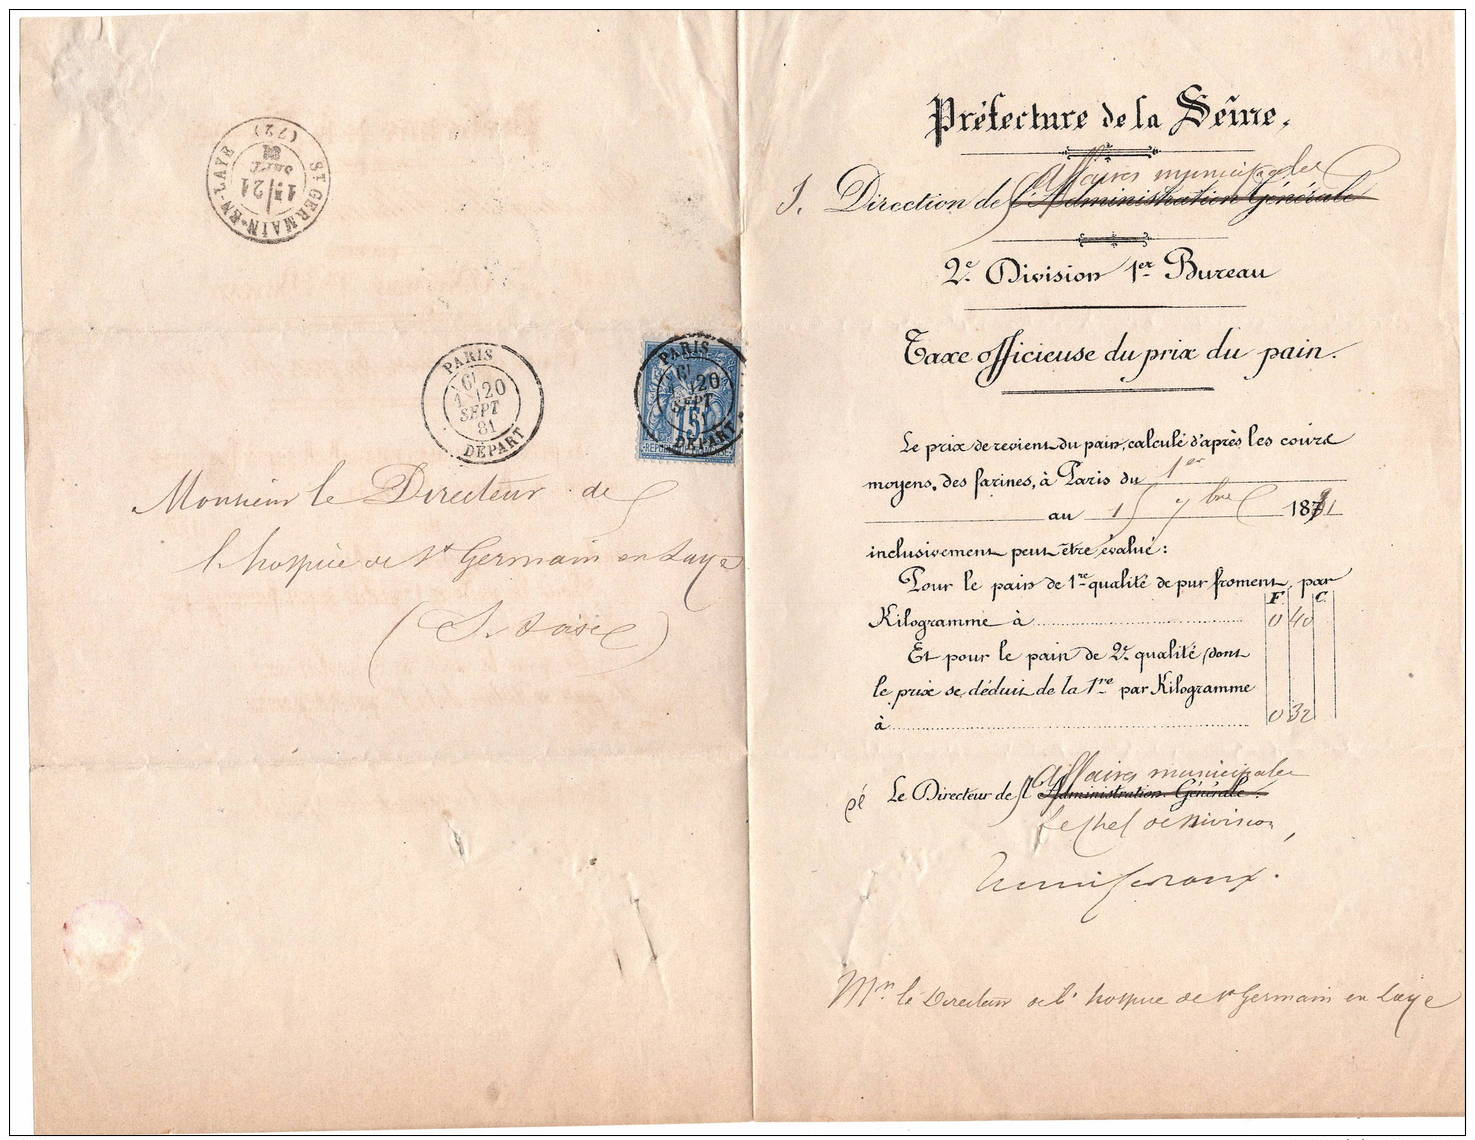 ST GERMAIN-EN-LAYE
(72)
21
SEPT
81
PARIS
6E
20
SEPT
81
DÉPART
PARIS
6E
20
SEPT
81
DÉPART
15
Monsieur le Directeur de
l'hospice de St Germain en Laye
(S. & Oise)
Préfecture de la Seine.
Affaires municipales
Direction de l'Administration Générale
2e Division 1er Bureau
Taxe officieuse du prix du pain.
Le prix de revient du pain, calculé d'après les cours
moyens, des farines, à Paris du 1er
au 15 7bre 1881
inclusivement peut être évalué:
Pour le pain de 1re qualité de pur froment, par
F. C.
Kilogramme à 0 40
Et pour le pain de 2e qualité, dont
le prix se déduit de la 1re par Kilogramme
à 0 32
Affaires municipales
pé Le Directeur de l'Administration Générale.
Le Chef de Division,
Mr. le Directeur de l'hospice de St Germain en Laye